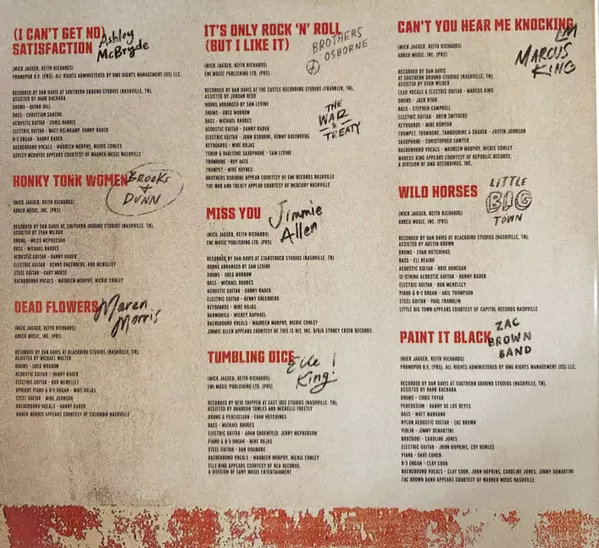 (I CAN'T GET NO)
SATISFACTION
Ashley
McBryde
(MICK JAGGER, KEITH RICHARDS)
PROMOPUB B.V. (PRS). ALL RIGHTS ADMINISTERED BY BMG RIGHTS MANAGEMENT (US) LLC.
RECORDED BY DAN DAVIS AT SOUTHERN GROUND STUDIOS (NASHVILLE, TN).
ASSISTED BY HANK
DRUMS - QUINN HILL
BASS - CHRISTIAN SANCHO
ACOUSTIC GUITAR - CHRIS HARRIS
ELECTRIC GUITAR - MATT HELMKAMP, DANNY RADER
B-3 ORGAN - DANNY RADER
BACKGROUND VOCALS - MAUREEN MURPHY, MICKIE CONLEY
ASHLEY MCBRYDE APPEARS COURTESY OF WARNER MUSIC NASHVILLE
HONKY TONK WOMEN
BROOKS
+
DUNN
(MICK JAGGER, KEITH RICHARDS)
ABKCO MUSIC, INC. (PRS)
RECORDED BY DAN DAVIS AT SOUTHERN GROUND STUDIOS (NASHVILLE, TN).
ASSISTED BY EVAN WILBER
DRUMS - MILES MCPHERSON
BASS - MICHAEL RHODES
ACOUSTIC GUITAR - DANNY RADER
ELECTRIC GUITAR - KENNY GREENBERG, ROB MCNELLEY
STEEL GUITAR - GARY MORSE
BACKGROUND VOCALS - MAUREEN MURPHY, MICKIE CONLEY
DEAD FLOWERS
Maren
Morris
(MICK JAGGER, KEITH RICHARDS)
ABKCO MUSIC, INC. (PRS)
RECORDED BY DAN DAVIS AT BLACKBIRD STUDIOS (NASHVILLE, TN).
ASSISTED BY MICHAEL WALTER
DRUMS - GREG MORROW
ACOUSTIC GUITAR - DANNY RADER
ELECTRIC GUITAR - ROB MCNELLEY
UPRIGHT PIANO & B-3 ORGAN - MIKE ROJAS
STEEL GUITAR - MIKE JOHNSON
BACKGROUND VOCALS - DANNY RADER
MAREN MORRIS APPEARS COURTESY OF COLUMBIA NASHVILLE
IT'S ONLY ROCK 'N' ROLL
(BUT I LIKE IT)
BROTHERS
OSBORNE
(MICK JAGGER, KEITH RICHARDS)
EMI MUSIC PUBLISHING LTD. (PRS)
RECORDED BY DAN DAVIS AT THE CASTLE RECORDING STUDIOS (FRANKLIN, TN).
ASSISTED BY JORDAN REED
HORNS ARRANGED BY SAM LEVINE
DRUMS - GREG MORROW
BASS - MICHAEL RHODES
ACOUSTIC GUITAR - DANNY RADER
ELECTRIC GUITAR - JOHN OSBORNE, KENNY GREENBERG
KEYBOARDS - MIKE ROJAS
TENOR & BARITONE SAXOPHONE - SAM LEVINE
TROMBONE - ROY AGEE
TRUMPET - MIKE HAYNES
BROTHERS OSBORNE APPEAR COURTESY OF EMI RECORDS NASHVILLE
THE WAR AND TREATY APPEAR COURTESY OF MERCURY NASHVILLE
THE
WAR
&
TREATY
MISS YOU
Jimmie
Allen
(MICK JAGGER, KEITH RICHARDS)
EMI MUSIC PUBLISHING LTD. (PRS)
RECORDED BY DAN DAVIS AT STARSTRUCK STUDIOS (NASHVILLE, TN)
HORNS ARRANGED BY SAM LEVINE
DRUMS - GREG MORROW
BASS - MICHAEL RHODES
ACOUSTIC GUITAR - DANNY RADER
ELECTRIC GUITAR - KENNY GREENBERG
KEYBOARDS - MIKE ROJAS
HARMONICA - MICKEY RAPHAEL
BACKGROUND VOCALS - MAUREEN MURPHY, MICKIE CONLEY
JIMMIE ALLEN APPEARS COURTESY OF THIS IS HIT, INC. D/B/A STONEY CREEK RECORDS
TUMBLING DICE
Elle
King!
(MICK JAGGER, KEITH RICHARDS)
EMI MUSIC PUBLISHING LTD. (PRS)
RECORDED BY REID SHIPPEN AT EAST IRIS STUDIOS (NASHVILLE, TN).
ASSISTED BY BRANDON TOWLES AND MICHELLE FREETLY
DRUMS & PERCUSSION - EVAN HUTCHINGS
BASS - MICHAEL RHODES
ELECTRIC GUITAR - ADAM SHOENFELD, JERRY MCPHERSON
PIANO & B-3 ORGAN - MIKE ROJAS
STEEL GUITAR - DAN DUGMORE
BACKGROUND VOCALS - MAUREEN MURPHY, MICKIE CONLEY
ELLE KING APPEARS COURTESY OF RCA RECORDS,
A DIVISION OF SONY MUSIC ENTERTAINMENT
CAN'T YOU HEAR ME KNOCKING
MARCUS
KING
(MICK JAGGER, KEITH RICHARDS)
ABKCO MUSIC, INC. (PRS)
RECORDED BY DAN DAVIS
AT SOUTHERN GROUND STUDIOS (NASHVILLE, TN).
ASSISTED BY EVAN WILBER
LEAD VOCALS & ELECTRIC GUITAR - MARCUS KING
DRUMS - JACK RYAN
BASS - STEPHEN CAMPBELL
ELECTRIC GUITAR - DREW SMITHERS
KEYBOARDS - MIKE RUNYON
TRUMPET, TROMBONE, TAMBOURINE & SHAKER - JUSTIN JOHNSON
SAXOPHONE - CHRISTOPHER SAWYER
BACKGROUND VOCALS - MAUREEN MURPHY, MICKIE CONLEY
MARCUS KING APPEARS COURTESY OF REPUBLIC RECORDS,
A DIVISION OF UMG RECORDINGS, INC.
WILD HORSES
LITTLE
BIG
TOWN
(MICK JAGGER, KEITH RICHARDS)
ABKCO MUSIC, INC. (PRS)
RECORDED BY DAN DAVIS AT BLACKBIRD STUDIOS (NASHVILLE, TN).
ASSISTED BY AUSTIN BROWN
DRUMS - EVAN HUTCHINGS
BASS - ELI BEAIRD
ACOUSTIC GUITAR - KRIS DONEGAN
12-STRING ACOUSTIC GUITAR - DANNY RADER
ELECTRIC GUITAR - ROB MCNELLEY
PIANO & B-3 ORGAN - AKIL THOMPSON
STEEL GUITAR - PAUL FRANKLIN
LITTLE BIG TOWN APPEARS COURTESY OF CAPITOL RECORDS NASHVILLE
PAINT IT BLACK
ZAC
BROWN
BAND
(MICK JAGGER, KEITH RICHARDS)
PROMOPUB B.V. (PRS). ALL RIGHTS ADMINISTERED BY BMG RIGHTS MANAGEMENT (US) LLC.
RECORDED BY DAN DAVIS AT SOUTHERN GROUND STUDIOS (NASHVILLE, TN).
ASSISTED BY HANK
DRUMS - CHRIS FRYAR
PERCUSSION - DANNY DE LOS REYES
BASS - MATT MANGANO
NYLON ACOUSTIC GUITAR - ZAC BROWN
VIOLIN - JIMMY DEMARTINI
BOUZOUKI - CAROLINE JONES
ELECTRIC GUITAR - JOHN HOPKINS, COY BOWLES
PIANO - DAVE COHEN
B-3 ORGAN - CLAY COOK
BACKGROUND VOCALS - CLAY COOK, JOHN HOPKINS, CAROLINE JONES, JIMMY DEMARTINI
ZAC BROWN BAND APPEARS COURTESY OF WARNER MUSIC NASHVILLE